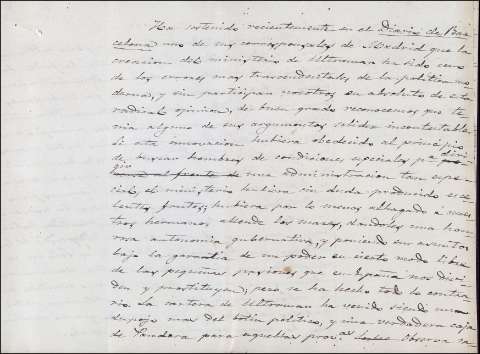 Ha sostenido recientemente en el Diario de Bar-
celona uno de sus corresponsales de Madrid que la
creacion del ministerio de Ultramar ha sido uno
de los errores mas trascendentales de la politica mo
derna, y sin participar nosotros en absoluto de esta
radical opinion, de buen grado reconocemos que te
nia alguno de sus argumentos solidez incontestable
Si esta innovacion hubiera obedecido al principio
de buscar hombres de condiciones especiales pª diri
gir una administracion tan espe-
cial, el ministerio hubiera sin duda producido exce
lentes frutos; hubiera por lo menos alhagado á nues
tros hermanos allende los mares, dandoles una hon
rosa autonomia gubernativa, y poniendo sus asuntos
bajo la garantia de un poder en cierto modo libre
de las pequeñas pasiones que en España nos divi-
den y prostituyen; pero se ha hecho todo lo contra
rio. La cartera de Ultramar ha venido siendo una
despojo mas del botin politico, y una verdadera caja
de Pandora para aquellas prov.as Observa